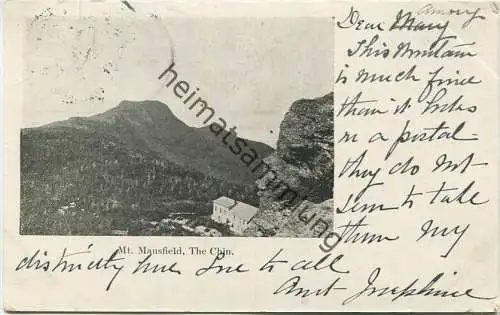 Dear Mary
Among
This Mountain
is much fine
than it looks
on a postal -
they do not
seem to take
them My
Mt. Mansfield, The Chin.
distinctly
love to all
Aunt Josephine
heimatsammlung.de